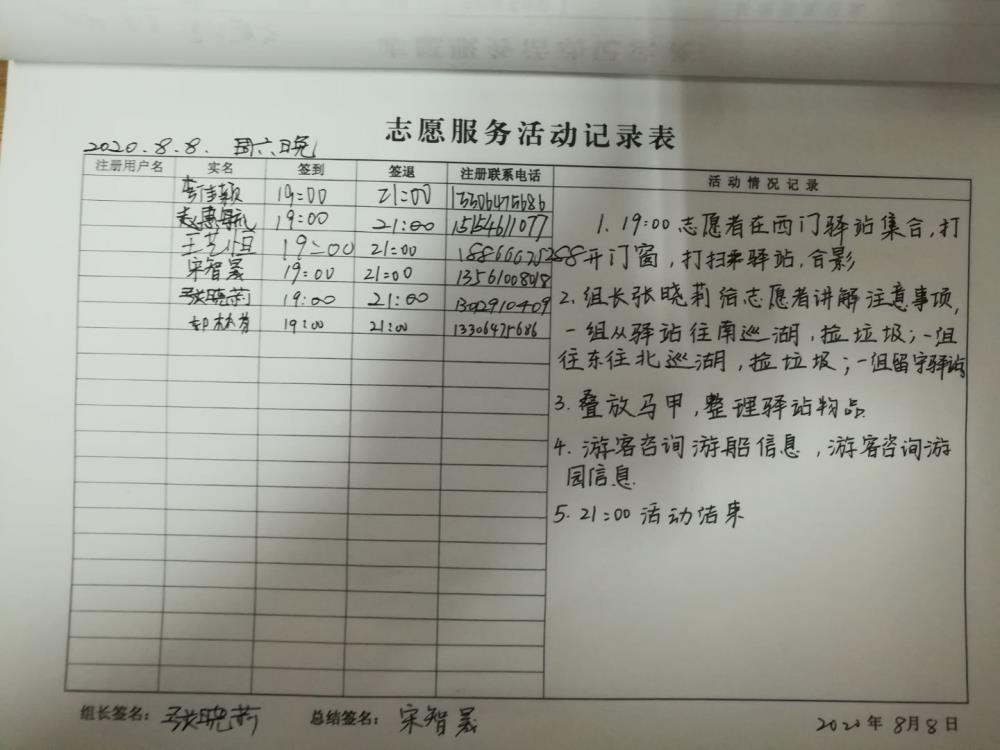 志愿服务活动记录表
2020.8.8. 周六晚
注册用户名 实名 签到 签退 注册联系电话 活动情况记录
19:00 21:00 13306475686
19:00 21:00 15154611077
王艺恒 19:00 21:00 18866675288
宋智晟 19:00 21:00 13561008018
张晓莉 19:00 21:00 1302910409
19:00 21:00 13306475686
1. 19:00 志愿者在西门驿站集合,打
开门窗,打扫来驿站,合影
2. 组长张晓莉给志愿者讲解注意事项,
一组从驿站往南巡湖,捡垃圾;一组
往东往北巡湖,捡垃圾;一组留守驿站
3. 叠放马甲,整理驿站物品.
4. 游客咨询游船信息,游客咨询游
园信息.
5. 21:00 活动结束
组长签名: 张晓莉 总结签名: 宋智晟 2020年8月8日